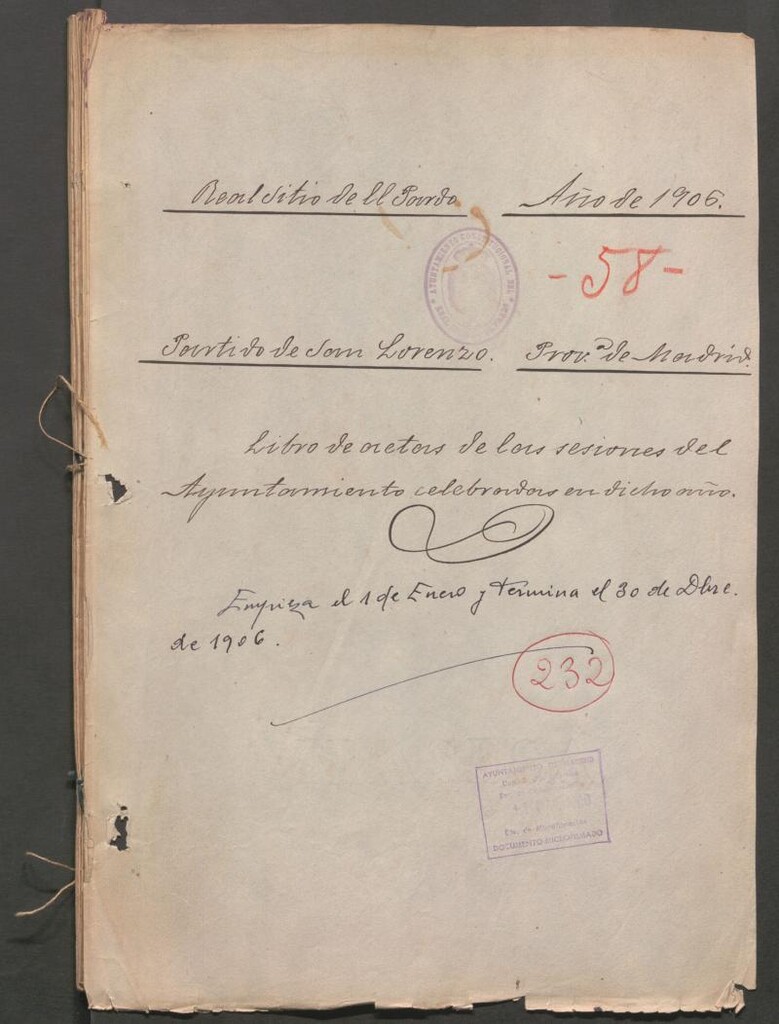 Real Sitio de El Pardo Año de 1906.
AYUNTAMIENTO CONSTITUCIONAL DEL
-58-
Partido de San Lorenzo. Prov.ª de Madrid.
Libro de actas de las sesiones del
Ayuntamiento celebradas en dicho año.
Empieza el 1 de Enero y termina el 30 de Dbre.
de 1906.
232
AYUNTAMIENTO DE MADRID
DOCUMENTO MICROFILMADO